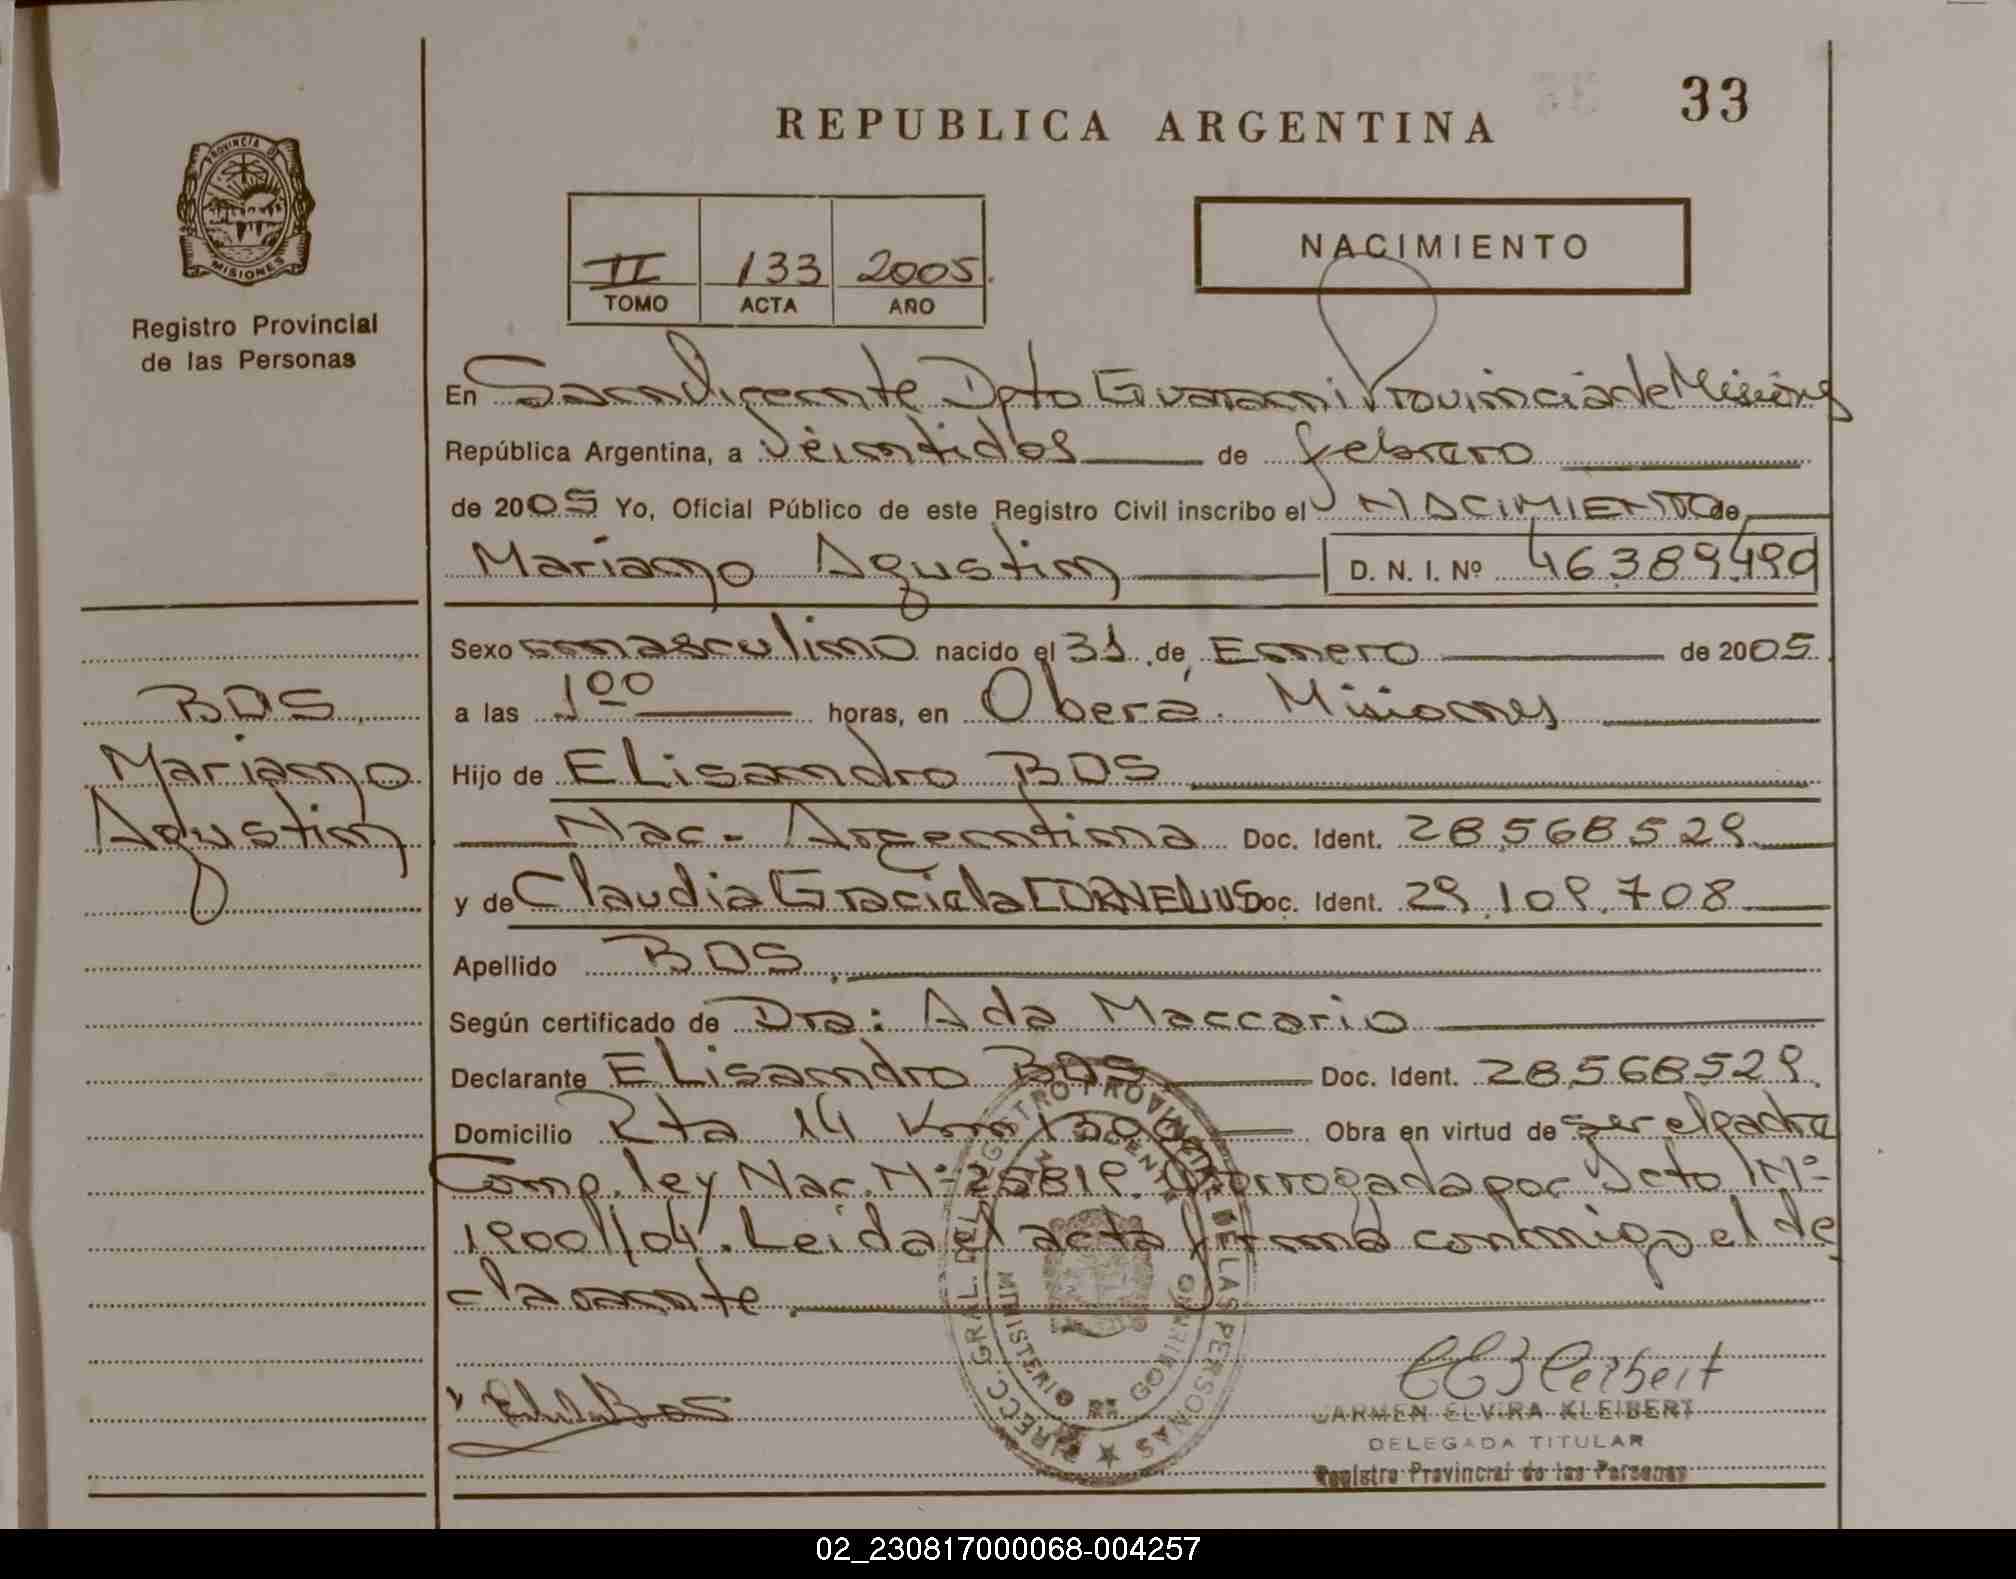 33
REPUBLICA ARGENTINA
PROVINCIA DE
MISIONES
Registro Provincial
de las Personas
II 133 2005.
TOMO ACTA AÑO
NACIMIENTO
En San Vicente Dpto Guarani Provincia de Misiones
República Argentina, a Veintidos de febrero
de 2005 Yo, Oficial Público de este Registro Civil inscribo el NACIMIENTO de
Mariano Agustin D. N. I. Nº 46389490
Sexo masculino nacido el 31 de Enero de 2005
a las 1⁰⁰ horas, en Oberá. Misiones
Hijo de ELisandro BOS
Nac- Argentina Doc. Ident. 28.568.529
y de Claudia Graciela CORNELIUS Doc. Ident. 29.109.708
Apellido BOS
Según certificado de Dra: Ada Maccario
Declarante ELisandro BOS Doc. Ident. 28.568.529.
Domicilio Rta 14 Km Obra en virtud de ser el padre
Comp. ley Nac. Nº 25819. Prorrogada por Dcto Nº
1900/04. Leida el acta firma conmigo el de
clarante.
BOS
Mariano
Agustin
DIREC. GRAL. DEL REGISTRO PROVINCIAL DE LAS PERSONAS
MINISTERIO DE GOBIERNO
Bos
Kleibert
CARMEN ELVIRA KLEIBERT
DELEGADA TITULAR
Registro Provincial de las Personas
02_230817000068-004257